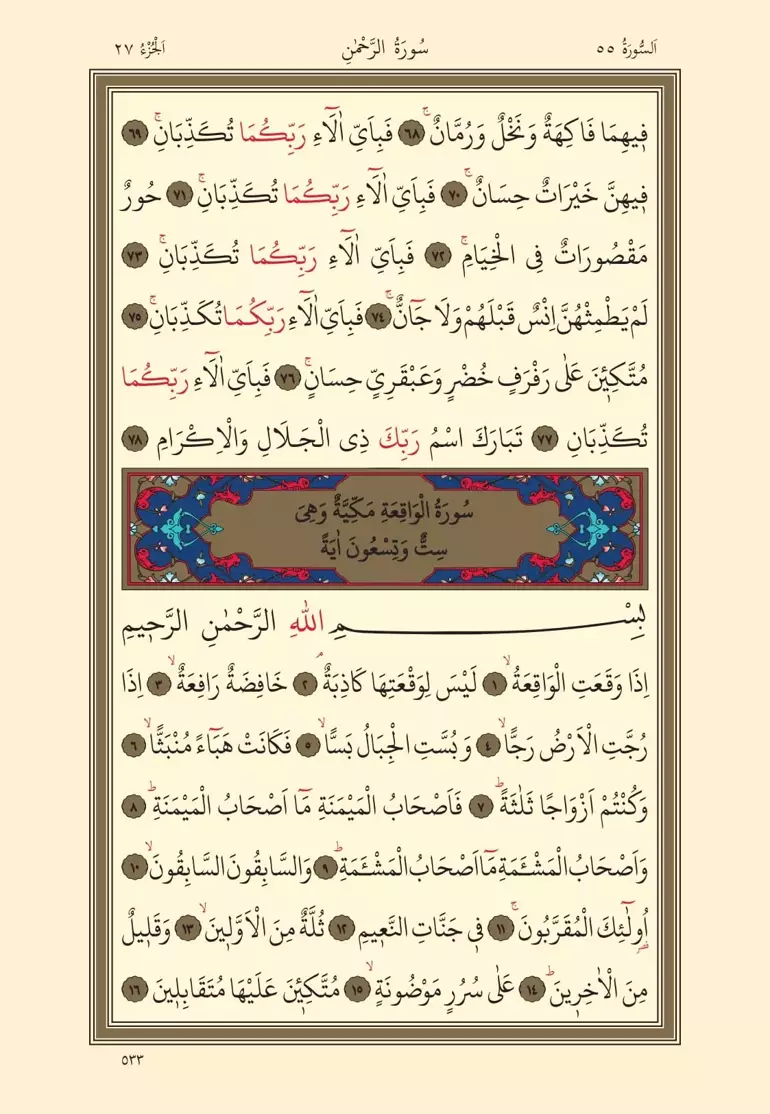 اَلسُّورَةُ ٥٥ سُورَةُ الرَّحْمٰنِ اَلْجُزْءُ ٢٧
فٖيهِمَا فَاكِهَةٌ وَنَخْلٌ وَرُمَّانٌۚ ﴿٦٨﴾ فَبِاَيِّ اٰلَٓاءِ رَبِّكُمَا تُكَذِّبَانِۚ ﴿٦٩﴾
فٖيهِنَّ خَيْرَاتٌ حِسَانٌۚ ﴿٧٠﴾ فَبِاَيِّ اٰلَٓاءِ رَبِّكُمَا تُكَذِّبَانِۚ ﴿٧١﴾ حُورٌ
مَقْصُورَاتٌ فِى الْخِيَامِۚ ﴿٧٢﴾ فَبِاَيِّ اٰلَٓاءِ رَبِّكُمَا تُكَذِّبَانِۚ ﴿٧٣﴾
لَمْ يَطْمِثْهُنَّ اِنْسٌ قَبْلَهُمْ وَلَا جَٓانٌّۚ ﴿٧٤﴾ فَبِاَيِّ اٰلَٓاءِ رَبِّكُمَا تُكَذِّبَانِۚ ﴿٧٥﴾
مُتَّكِـٖٔينَ عَلٰى رَفْرَفٍ خُضْرٍ وَعَبْقَرِيٍّ حِسَانٍۚ ﴿٧٦﴾ فَبِاَيِّ اٰلَٓاءِ رَبِّكُمَا
تُكَذِّبَانِ ﴿٧٧﴾ تَبَارَكَ اسْمُ رَبِّكَ ذِى الْجَلَالِ وَالْاِكْرَامِ ﴿٧٨﴾
سُورَةُ الْوَاقِعَةِ مَكِّيَّةٌ وَهِىَ
سِتٌّ وَتِسْعُونَ اٰيَةً
بِسْمِ اللّٰهِ الرَّحْمٰنِ الرَّحٖيمِ
اِذَا وَقَعَتِ الْوَاقِعَةُۙ ﴿١﴾ لَيْسَ لِوَقْعَتِهَا كَاذِبَةٌۢ ﴿٢﴾ خَافِضَةٌ رَافِعَةٌۙ ﴿٣﴾ اِذَا
رُجَّتِ الْاَرْضُ رَجًّاۙ ﴿٤﴾ وَبُسَّتِ الْجِبَالُ بَسًّاۙ ﴿٥﴾ فَكَانَتْ هَبَٓاءً مُنْبَثًّاۙ ﴿٦﴾
وَكُنْتُمْ اَزْوَاجًا ثَلٰثَةًؕ ﴿٧﴾ فَاَصْحَابُ الْمَيْمَنَةِ مَٓا اَصْحَابُ الْمَيْمَنَةِؕ ﴿٨﴾
وَاَصْحَابُ الْمَشْـَٔمَةِ مَٓا اَصْحَابُ الْمَشْـَٔمَةِؕ ﴿٩﴾ وَالسَّابِقُونَ السَّابِقُونَۙ ﴿١٠﴾
اُو۬لٰٓئِكَ الْمُقَرَّبُونَۚ ﴿١١﴾ فٖى جَنَّاتِ النَّعٖيمِ ﴿١٢﴾ ثُلَّةٌ مِنَ الْاَوَّلٖينَۙ ﴿١٣﴾ وَقَلٖيلٌ
مِنَ الْاٰخِرٖينَؕ ﴿١٤﴾ عَلٰى سُرُرٍ مَوْضُونَةٍۙ ﴿١٥﴾ مُتَّكِـٖٔينَ عَلَيْهَا مُتَقَابِلٖينَ ﴿١٦﴾
٥٣٣